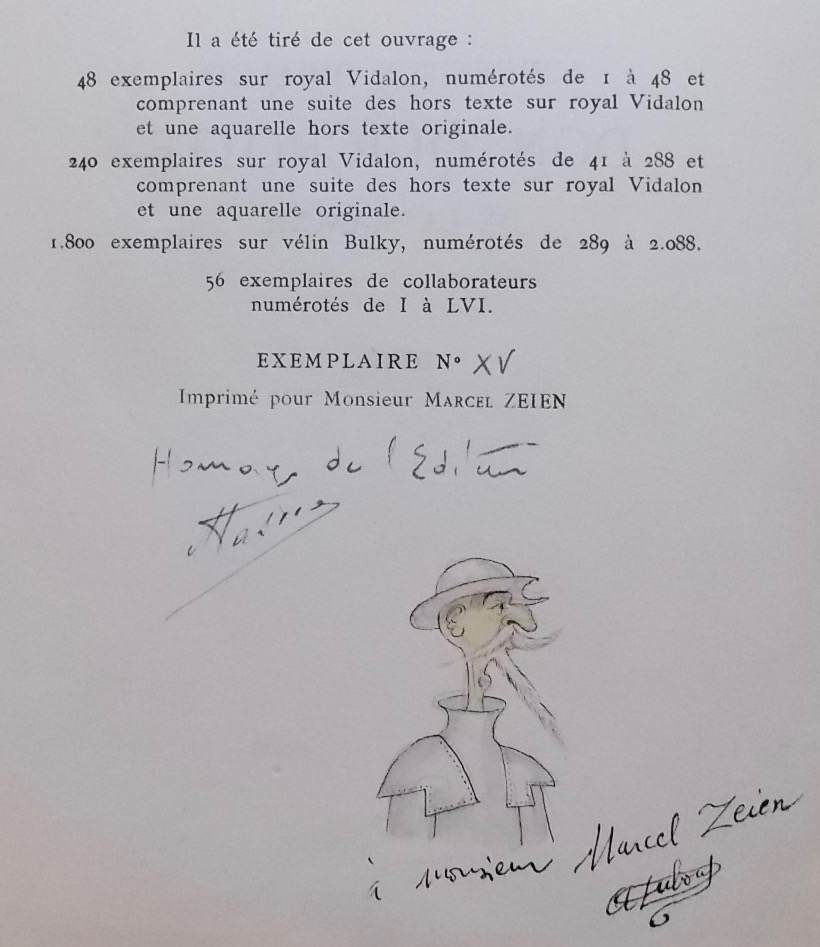 Il a été tiré de cet ouvrage :
48 exemplaires sur royal Vidalon, numérotés de 1 à 48 et
comprenant une suite des hors texte sur royal Vidalon
et une aquarelle hors texte originale.
240 exemplaires sur royal Vidalon, numérotés de 41 à 288 et
comprenant une suite des hors texte sur royal Vidalon
et une aquarelle originale.
1.800 exemplaires sur vélin Bulky, numérotés de 289 à 2.088.
56 exemplaires de collaborateurs
numérotés de I à LVI.
EXEMPLAIRE Nº XV
Imprimé pour Monsieur MARCEL ZEIEN
Hommage de l'Editeur
à Monsieur Marcel Zeien